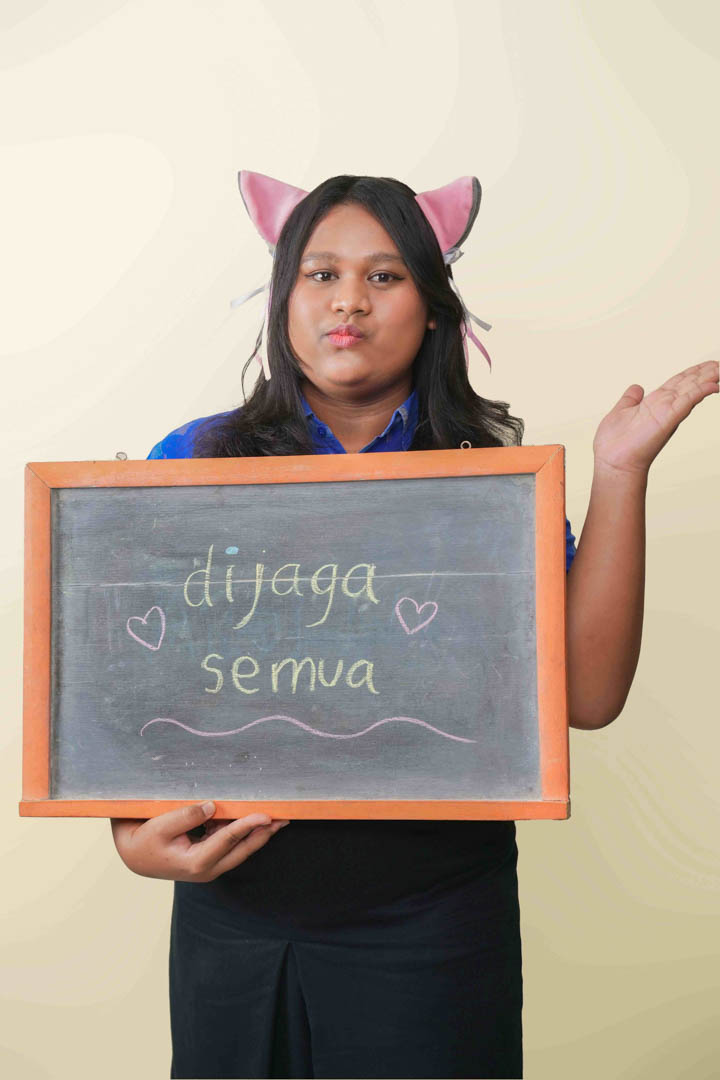 dijaga
semua